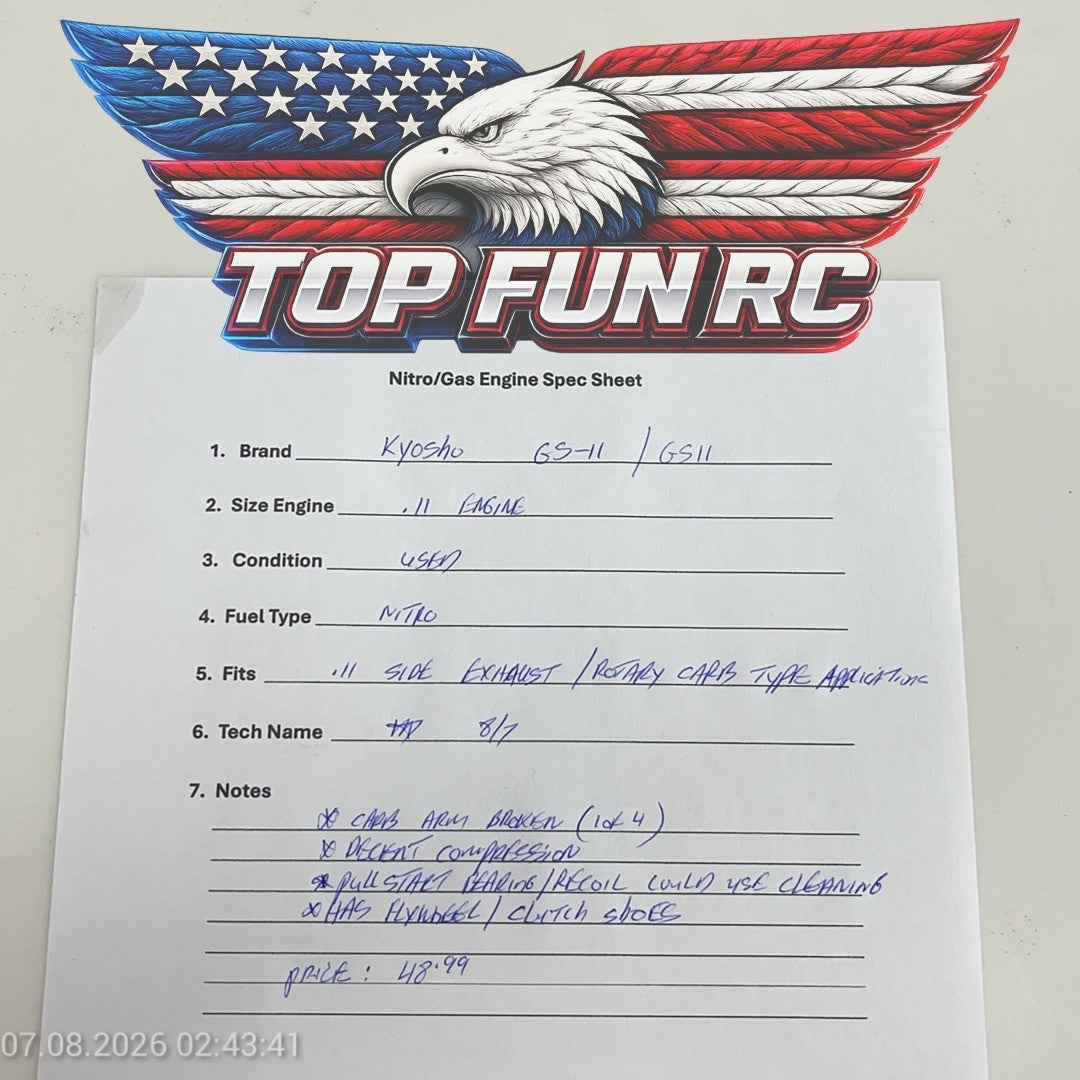 TOP FUN RC
Nitro/Gas Engine Spec Sheet
1. Brand Kyosho GS-11 / GS11
2. Size Engine .11 ENGINE
3. Condition USED
4. Fuel Type NITRO
5. Fits .11 SIDE EXHAUST / ROTARY CARB TYPE APPLICATIONS
6. Tech Name 8/7
7. Notes
* CARB ARM BROKEN (1 of 4)
* DECENT COMPRESSION
* PULLSTART BEARING/RECOIL COULD USE CLEANING
* HAS FLYWHEEL / CLUTCH SHOES
PRICE: 48.99
07.08.2026 02:43:41